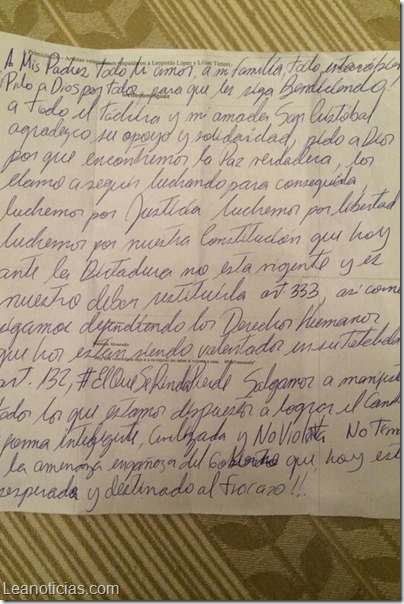 Artistas venezolanos respaldaron a Leopoldo López y Lilian Tintori
A Mis Padres todo mi amor, a mi familia, todo
Pido a Dios por todos para que les siga Bendiciendo.
a todo el Táchira y mi amada San Cristóbal
agradezco su apoyo y solidaridad, pido a Dios
por que encontremos la Paz verdadera, los
llamo a seguir luchando para conseguirla
luchemos por Justicia luchemos por libertad
luchemos por nuestra Constitución que hoy
ante la Dictadura no esta vigente y es
nuestro deber restituirla art 333, asi como
sigamos defendiendo los Derechos Humanos
Alvarado
que hoy estan siendo violentados
art. 132, #ElQueSeRindePierde Salgamos a manifes
todos los que estamos dispuestos a lograr el Camb
forma inteligente, civilizada y No Violenta No Tem
la amenaza engañosa del Gobierno que, hoy est
sesperado y destinado al fracaso!!.
Leanoticias.com